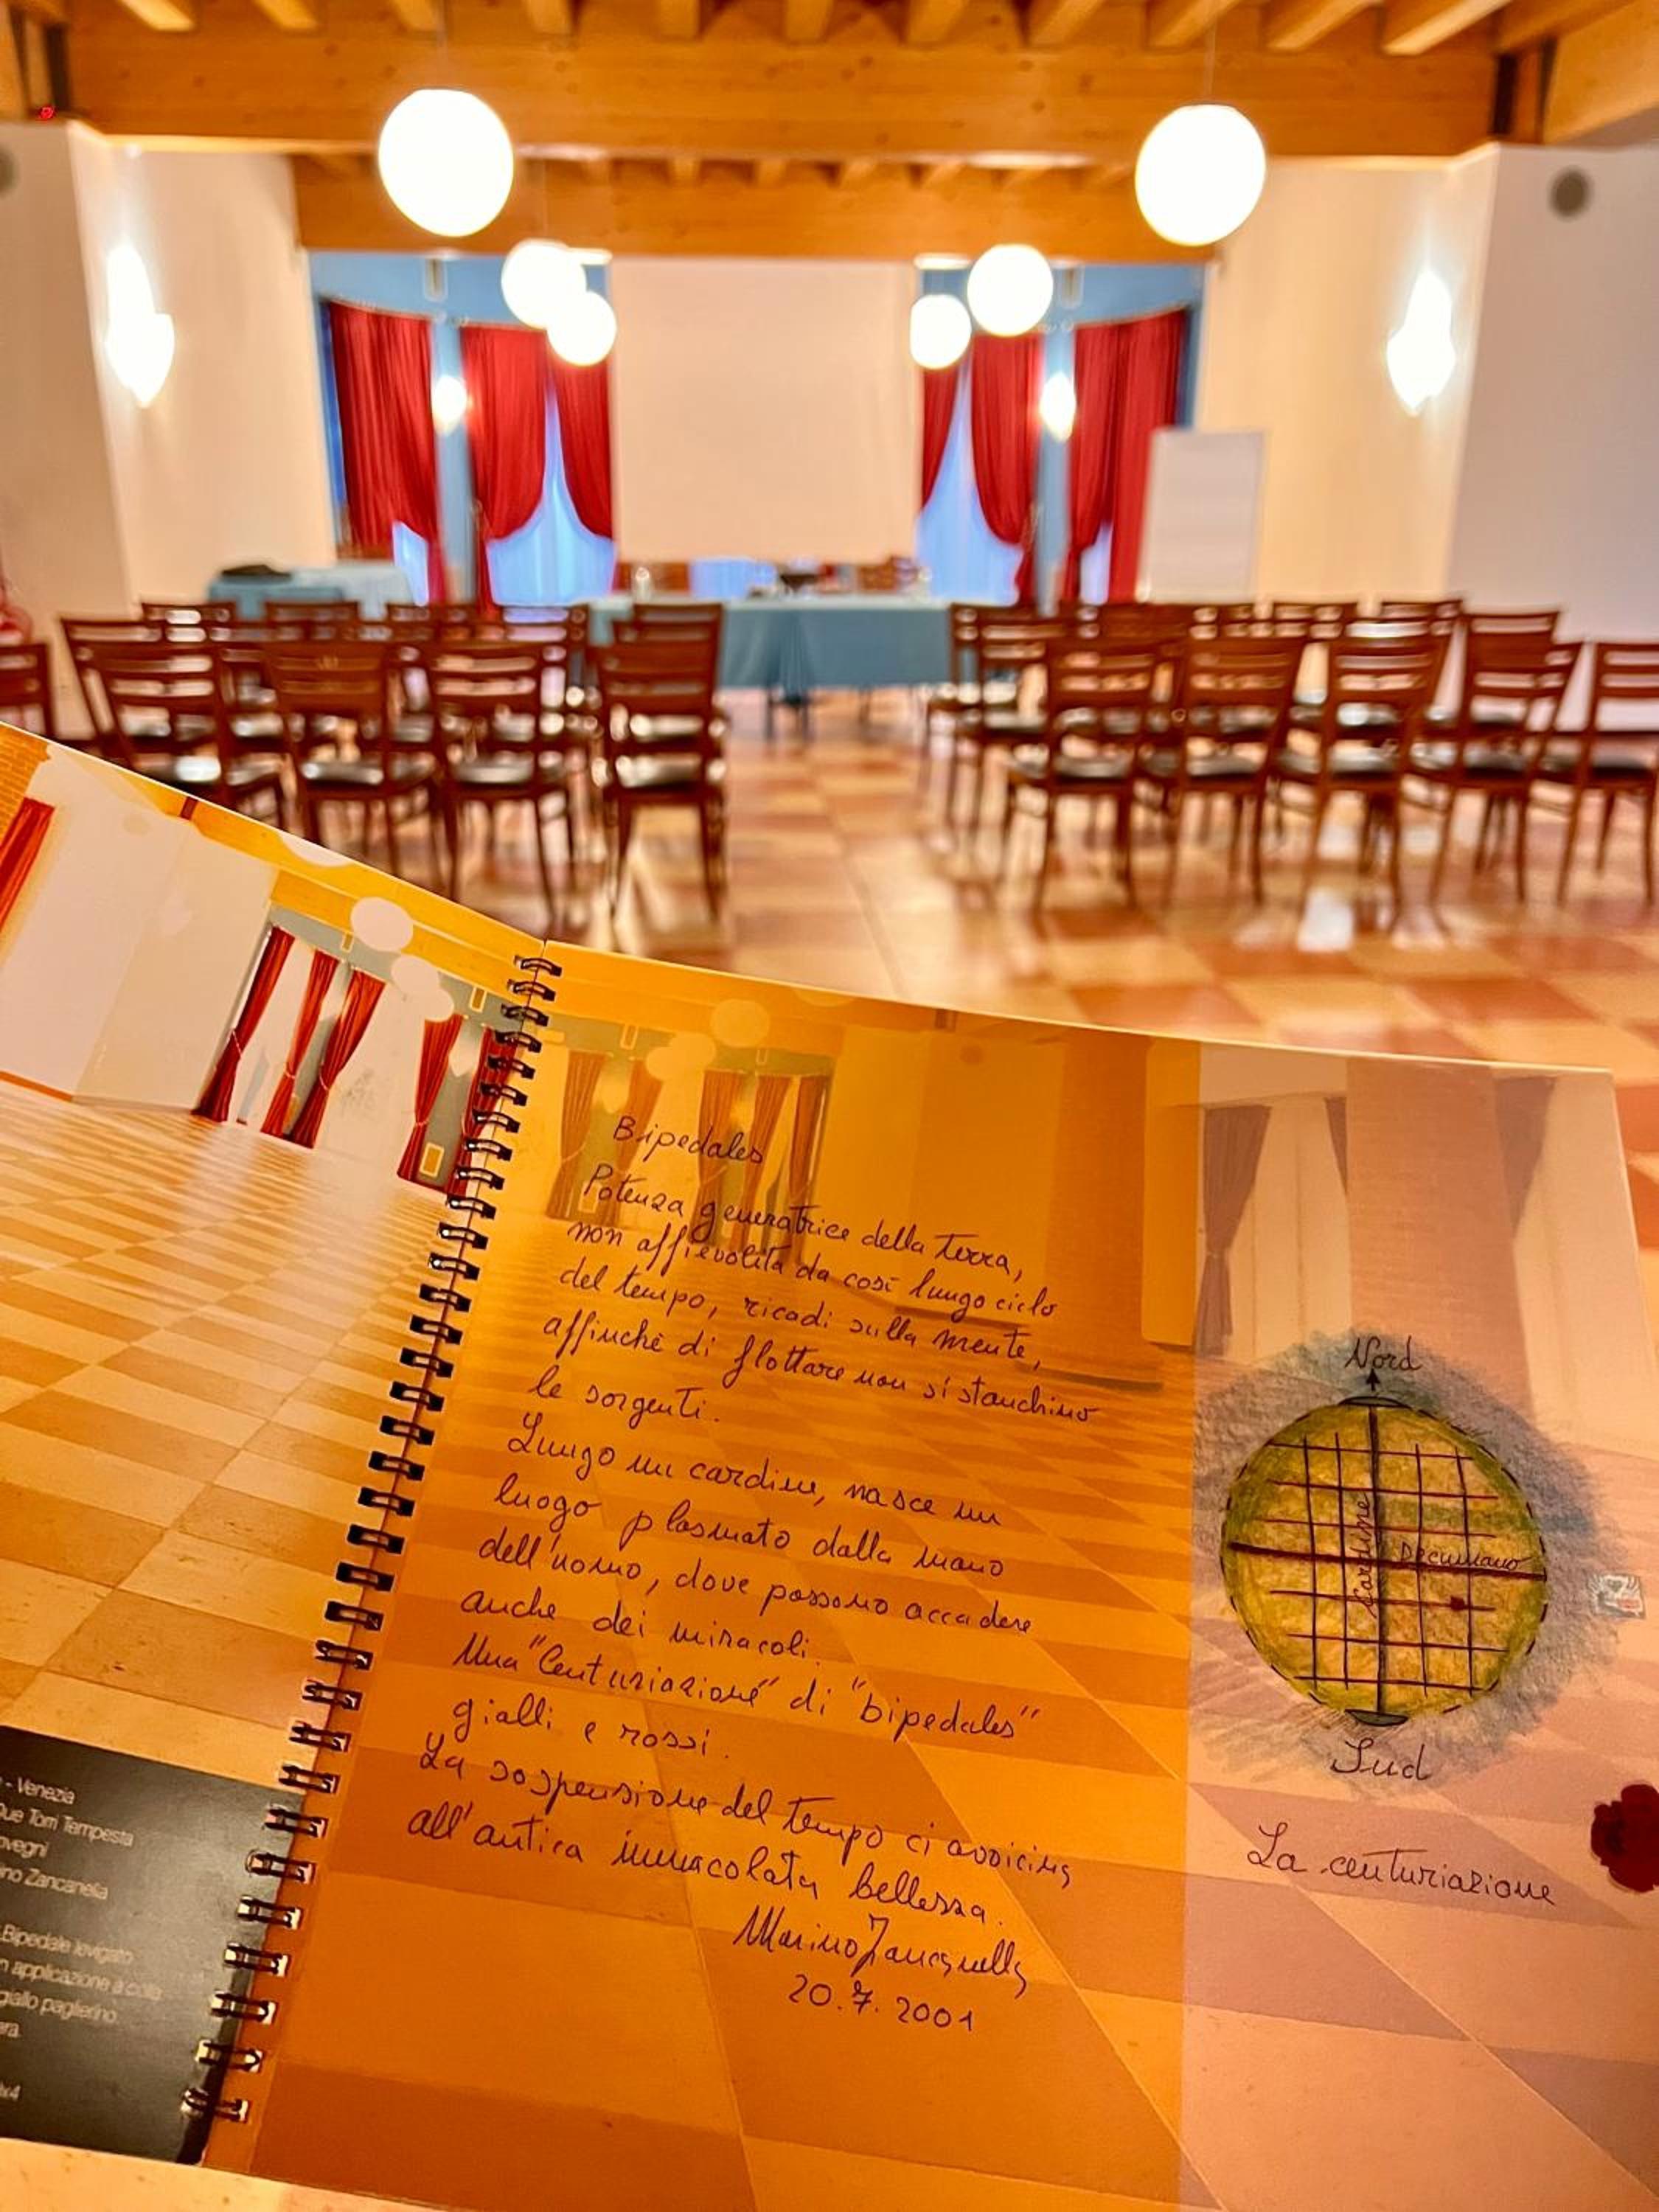 Bipedales
Potenza generatrice della terra,
non affievolita da così lungo ciclo
del tempo, ricadi sulla mente,
affinchè di flottare non si stanchino
le sorgenti.
Lungo un cardine, nasce un
luogo plasmato dalla mano
dell'uomo, dove possono accadere
anche dei miracoli.
Una "Centuriazione" di "bipedales"
gialli e rossi.
La sospensione del tempo ci avvicina
all'antica immacolata bellezza.
Marino Zancanella
20.7.2001
Nord
Cardine
Decumano
Sud
La centuriazione
- Venezia
Due Torri Tempesta
ino Zancanella
Bipedale levigato
applicazione a colla
giallo paglierino